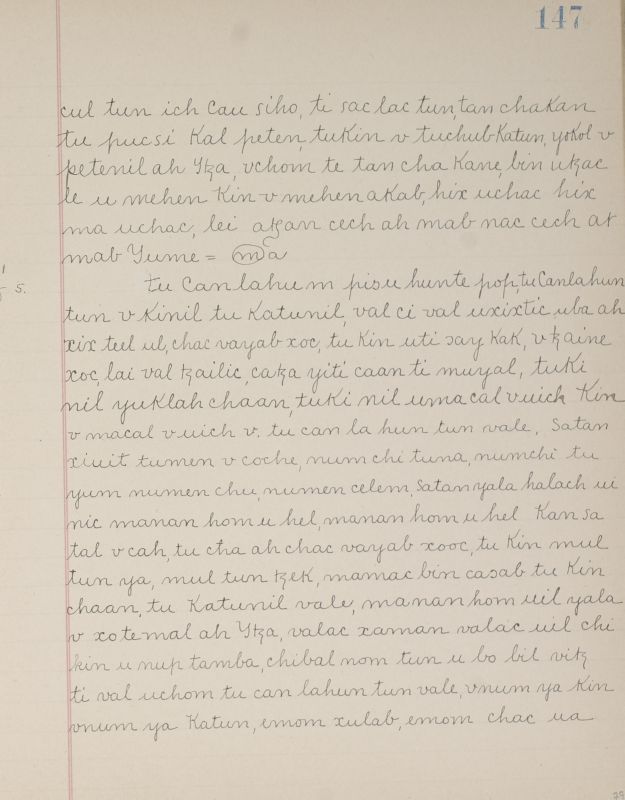 147
cul tun ich Cau siho, ti sac lac tun, tan chakan
tu pucsi Kal peten, tukin v tuchub Katun, yokol v
petenil ah Ytza, vchom te tan cha Kane, bin utzac
le u mehen Kin v mehen akab, hix uchac hix
ma uchac, lei atzan cech ah mab nac cech at
mab Yume = ma
tu Canlahu m pisu hunte pop, tu Canlahun
5.
tun v Kinil tu Katunil, val ci val uxixtic uba ah
xix teel ul, chac vayab xoc, tu Kin uti say Kak, v tzaine
xoc, lai val tzailic, catza yiti caan ti muyal, tuki
nil yuklah chaan, tuki nil umacal vuich Kin
v macal v uich v. tu can la hun tun vale, Satan
xiuit tumen v coche, num chi tuna, numchi tu
yum numen chu, numen celem, Satan yala halach ui
nic manan hom u hel, manan hom u hel Kan sa
tal v cah, tu cha ah chac vayab xooc, tu Kin mul
tun ya, mul tun tzek, mamac bin casab tu Kin
chaan, tu Katunil vale, manan hom uil yala
v xotemal ah Ytza, valac xaman valac uil chi
kin u nup tamba, chibal nom tun u bo bil vitz
ti val uchom tu can lahun tun vale, vnum ya Kin
vnum ya Katun, emom xulab, emom chac ua